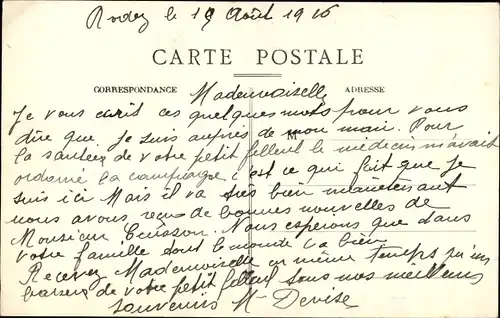 Rodez le 19 Août 1916
CARTE POSTALE
CORRESPONDANCE Mademoiselle ADRESSE
Je vous écrit ces quelques mots pour vous
dire que Je suis auprès de mon mari. Pour
la santée de votre petit filleul le médecin m'avait
ordonné la campagne c'est ce qui fait que Je
suis ici Mais il va très bien maintenant
nous avons reçu de bonnes nouvelles de
Monsieur Nous esperons que dans
votre famille tout le monde va bien
Recevez Mademoiselle en même temps qu'un
baisers de votre petit filleul tous nos meilleurs
souvenirs Devise